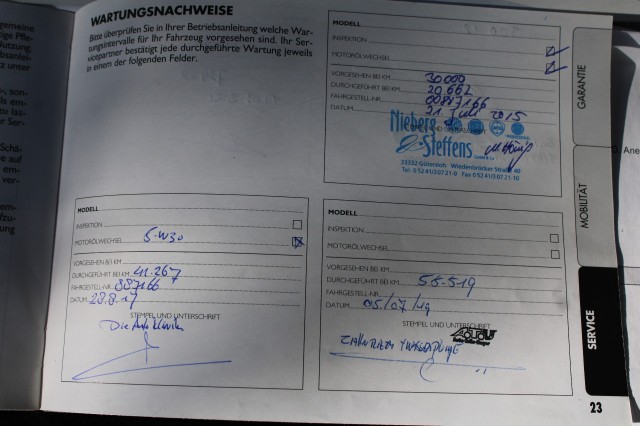 WARTUNGSNACHWEISE
Bitte überprüfen Sie in Ihrer Betriebsanleitung welche War-
tungsintervalle für Ihr Fahrzeug vorgesehen sind. Ihr Ser-
vicepartner bestätigt jede durchgeführte Wartung jeweils
in einem der folgenden Felder.
MODELL
INSPEKTION
MOTORÖLWECHSEL
VORGESEHEN BEI KM 30000
DURCHGEFÜHRT BEI KM 20662
FAHRGESTELL-NR. 00887166
DATUM 21. Juli 2015
Nieberg
& Steffens
33332 Gütersloh Wiedenbrücker Straße 40
Tel. 0 52 41/3 07 21-0 Fax 0 52 41/3 07 21-10
MODELL
INSPEKTION
MOTORÖLWECHSEL 5-W30
VORGESEHEN BEI KM
DURCHGEFÜHRT BEI KM 41.267
FAHRGESTELL-NR. 887166
DATUM 28.8.17
STEMPEL UND UNTERSCHRIFT
Die Auto Klinik
MODELL
INSPEKTION
MOTORÖLWECHSEL
VORGESEHEN BEI KM
DURCHGEFÜHRT BEI KM 58-519
FAHRGESTELL-NR.
DATUM 05/07/19
STEMPEL UND UNTERSCHRIFT
GARANTIE
MOBILITÄT
SERVICE
23